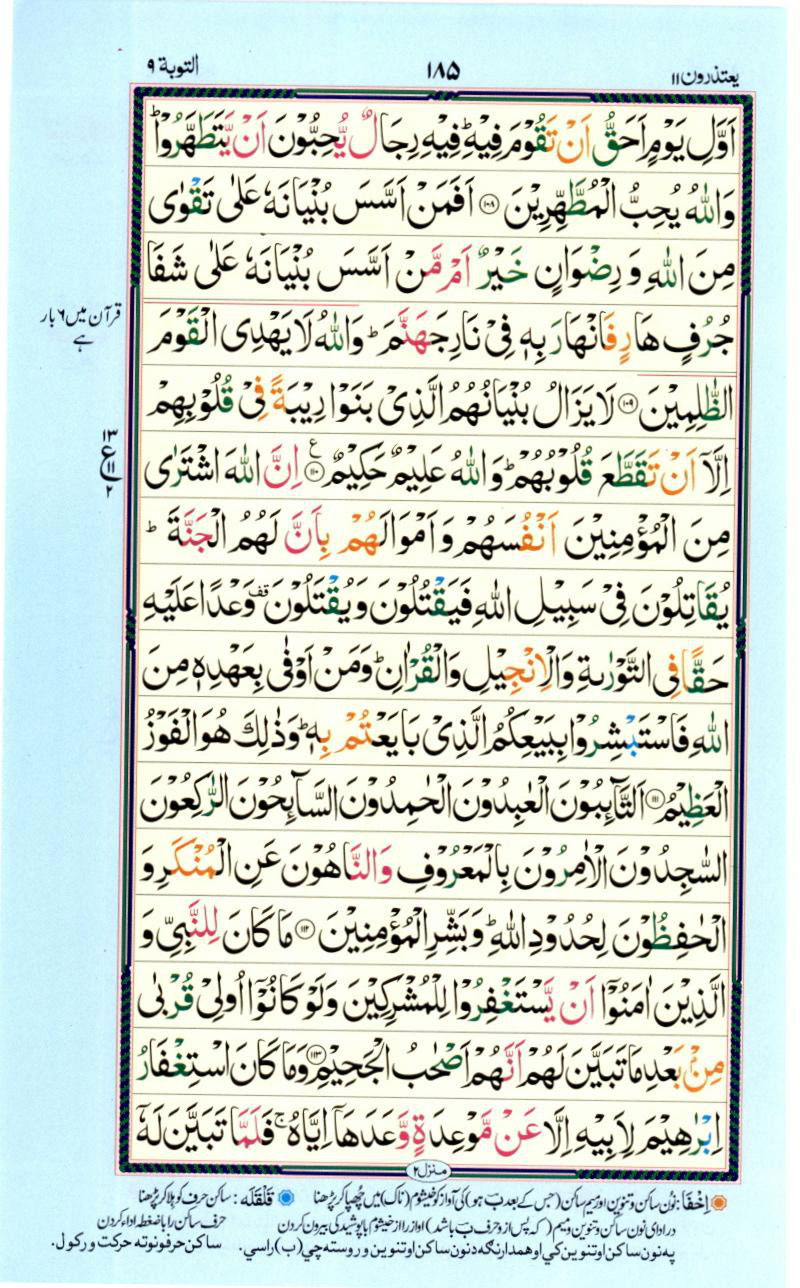 يعتذرون ١١ ١٨٥ التوبة ٩
اَوَّلِ يَوْمٍ اَحَقُّ اَنْ تَقُوْمَ فِيْهِ ؕ فِيْهِ رِجَالٌ يُّحِبُّوْنَ اَنْ يَّتَطَهَّرُوْا ؕ
وَاللّٰهُ يُحِبُّ الْمُطَّهِّرِيْنَ ﴿۱۰۸﴾ اَفَمَنْ اَسَّسَ بُنْيَانَهٗ عَلٰى تَقْوٰى
مِنَ اللّٰهِ وَ رِضْوَانٍ خَيْرٌ اَمْ مَّنْ اَسَّسَ بُنْيَانَهٗ عَلٰى شَفَا
جُرُفٍ هَارٍ فَانْهَارَ بِهٖ فِيْ نَارِ جَهَنَّمَ ؕ وَاللّٰهُ لَا يَهْدِى الْقَوْمَ
قرآن میں ۶ بار
ہے
الظّٰلِمِيْنَ ﴿۱۰۹﴾ لَا يَزَالُ بُنْيَانُهُمُ الَّذِيْ بَنَوْا رِيْبَةً فِيْ قُلُوْبِهِمْ
اِلَّاۤ اَنْ تَقَطَّعَ قُلُوْبُهُمْ ؕ وَاللّٰهُ عَلِيْمٌ حَكِيْمٌ ﴿۱۱۰﴾ ع اِنَّ اللّٰهَ اشْتَرٰى
١٣
ع ١١
٢
مِنَ الْمُؤْمِنِيْنَ اَنْفُسَهُمْ وَ اَمْوَالَهُمْ بِاَنَّ لَهُمُ الْجَنَّةَ ؕ
يُقَاتِلُوْنَ فِيْ سَبِيْلِ اللّٰهِ فَيَقْتُلُوْنَ وَيُقْتَلُوْنَ قف وَعْدًا عَلَيْهِ
حَقًّا فِى التَّوْرٰىةِ وَالْاِنْجِيْلِ وَالْقُرْاٰنِ ؕ وَمَنْ اَوْفٰى بِعَهْدِهٖ مِنَ
اللّٰهِ فَاسْتَبْشِرُوْا بِبَيْعِكُمُ الَّذِيْ بَايَعْتُمْ بِهٖ ؕ وَذٰلِكَ هُوَ الْفَوْزُ
الْعَظِيْمُ ﴿۱۱۱﴾ اَلتَّآئِبُوْنَ الْعٰبِدُوْنَ الْحٰمِدُوْنَ السَّآئِحُوْنَ الرّٰكِعُوْنَ
السّٰجِدُوْنَ الْاٰمِرُوْنَ بِالْمَعْرُوْفِ وَالنَّاهُوْنَ عَنِ الْمُنْكَرِ وَ
الْحٰفِظُوْنَ لِحُدُوْدِ اللّٰهِ ؕ وَبَشِّرِ الْمُؤْمِنِيْنَ ﴿۱۱۲﴾ مَا كَانَ لِلنَّبِيِّ وَ
الَّذِيْنَ اٰمَنُوْۤا اَنْ يَّسْتَغْفِرُوْا لِلْمُشْرِكِيْنَ وَلَوْ كَانُوْۤا اُولِيْ قُرْبٰى
مِنْۢ بَعْدِ مَا تَبَيَّنَ لَهُمْ اَنَّهُمْ اَصْحٰبُ الْجَحِيْمِ ﴿۱۱۳﴾ وَمَا كَانَ اسْتِغْفَارُ
اِبْرٰهِيْمَ لِاَبِيْهِ اِلَّا عَنْ مَّوْعِدَةٍ وَّعَدَهَاۤ اِيَّاهُ ۚ فَلَمَّا تَبَيَّنَ لَهٗۤ
منزل ٢
اِخفَا: نُون ساکن و تنوین اور میم ساکن (جس کے بعد ب ہو) کی آواز کو خیشوم (ناک) میں چُھپا کر پڑھنا قَلقَلَه: ساکن حرف کو ہلا کر پڑھنا
در ادای نون ساکن و تنوین و میم (که پس از و حرف ب باشد) آواز را از خیشوم باپوشیدگی بیرون کردن حرف ساکن را با ضغطه اداء کردن
په نون ساکن او تنوین کي او همدا رنگه د نون ساکن او تنوین وروسته چي (ب) راسي. ساکن حرفو نو ته حرکت ورکول.